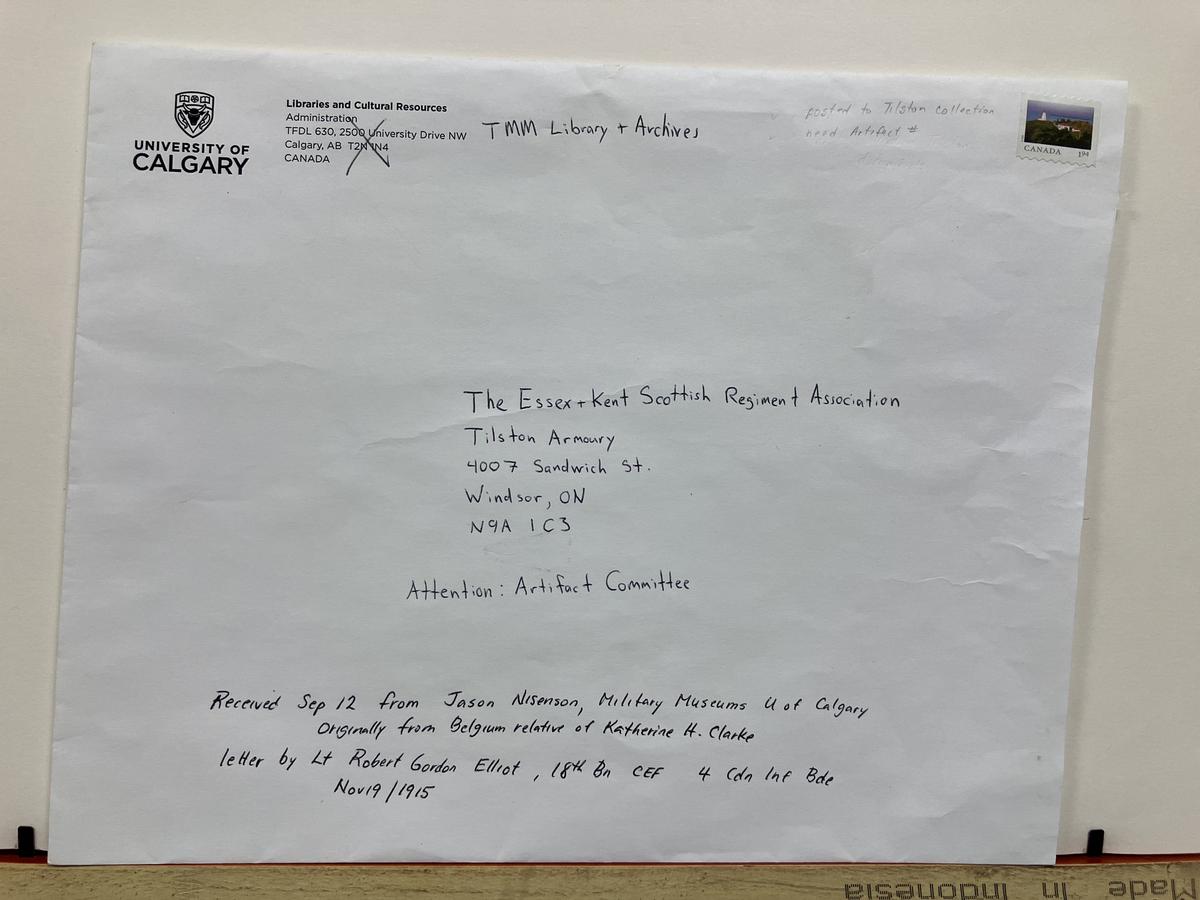 UNIVERSITY OF
CALGARY
Libraries and Cultural Resources
Administration
TFDL 630, 2500 University Drive NW
Calgary, AB T2N 1N4
CANADA
TMM Library + Archives
posted to Tilston Collection
need Artifact #
CANADA
The Essex + Kent Scottish Regiment Association
Tilston Armoury
4007 Sandwich St.
Windsor, ON
N9A 1C3
Attention: Artifact Committee
Received Sep 12 from Jason Nisenson, Military Museums U of Calgary
Originally from Belgium relative of Katherine H. Clarke
letter by Lt Robert Gordon Elliot, 18th Bn CEF 4 Cdn Inf Bde
Nov 19/1915
Made in Indonesia